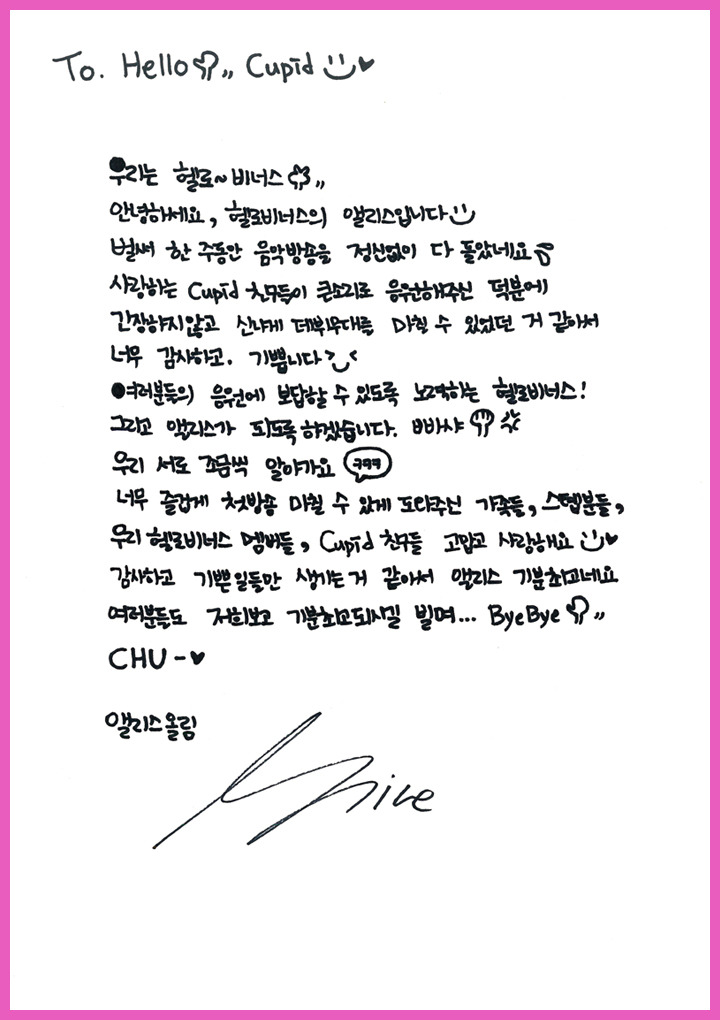 To. Hello,, Cupid
우리는 헬로~비너스,,
안녕하세요, 헬로비너스의 앨리스입니다
벌써 한 주동안 음악방송을 정신없이 다 돌았네요
사랑하는 Cupid 친구들이 큰소리로 응원해주신 덕분에
긴장하지않고 신나게 데뷔무대를 마칠 수 있었던 거 같아서
너무 감사하고. 기쁩니다>_<
여러분들의 응원에 보답할 수 있도록 노력하는 헬로비너스!
그리고 앨리스가 되도록 하겠습니다. 빠샤
우리 서로 조금씩 알아가요 ㅋㅋㅋ
너무 즐겁게 첫방송 마칠 수 있게 도와주신 가족들, 스텝분들,
우리 헬로비너스 멤버들, Cupid 친구들 고맙고 사랑해요
감사하고 기쁜일들만 생기는거 같아서 앨리스 기분최고네요
여러분들도 저희보고 기분최고되시길 빌며... ByeBye,,
CHU-♥
앨리스올림
Alice